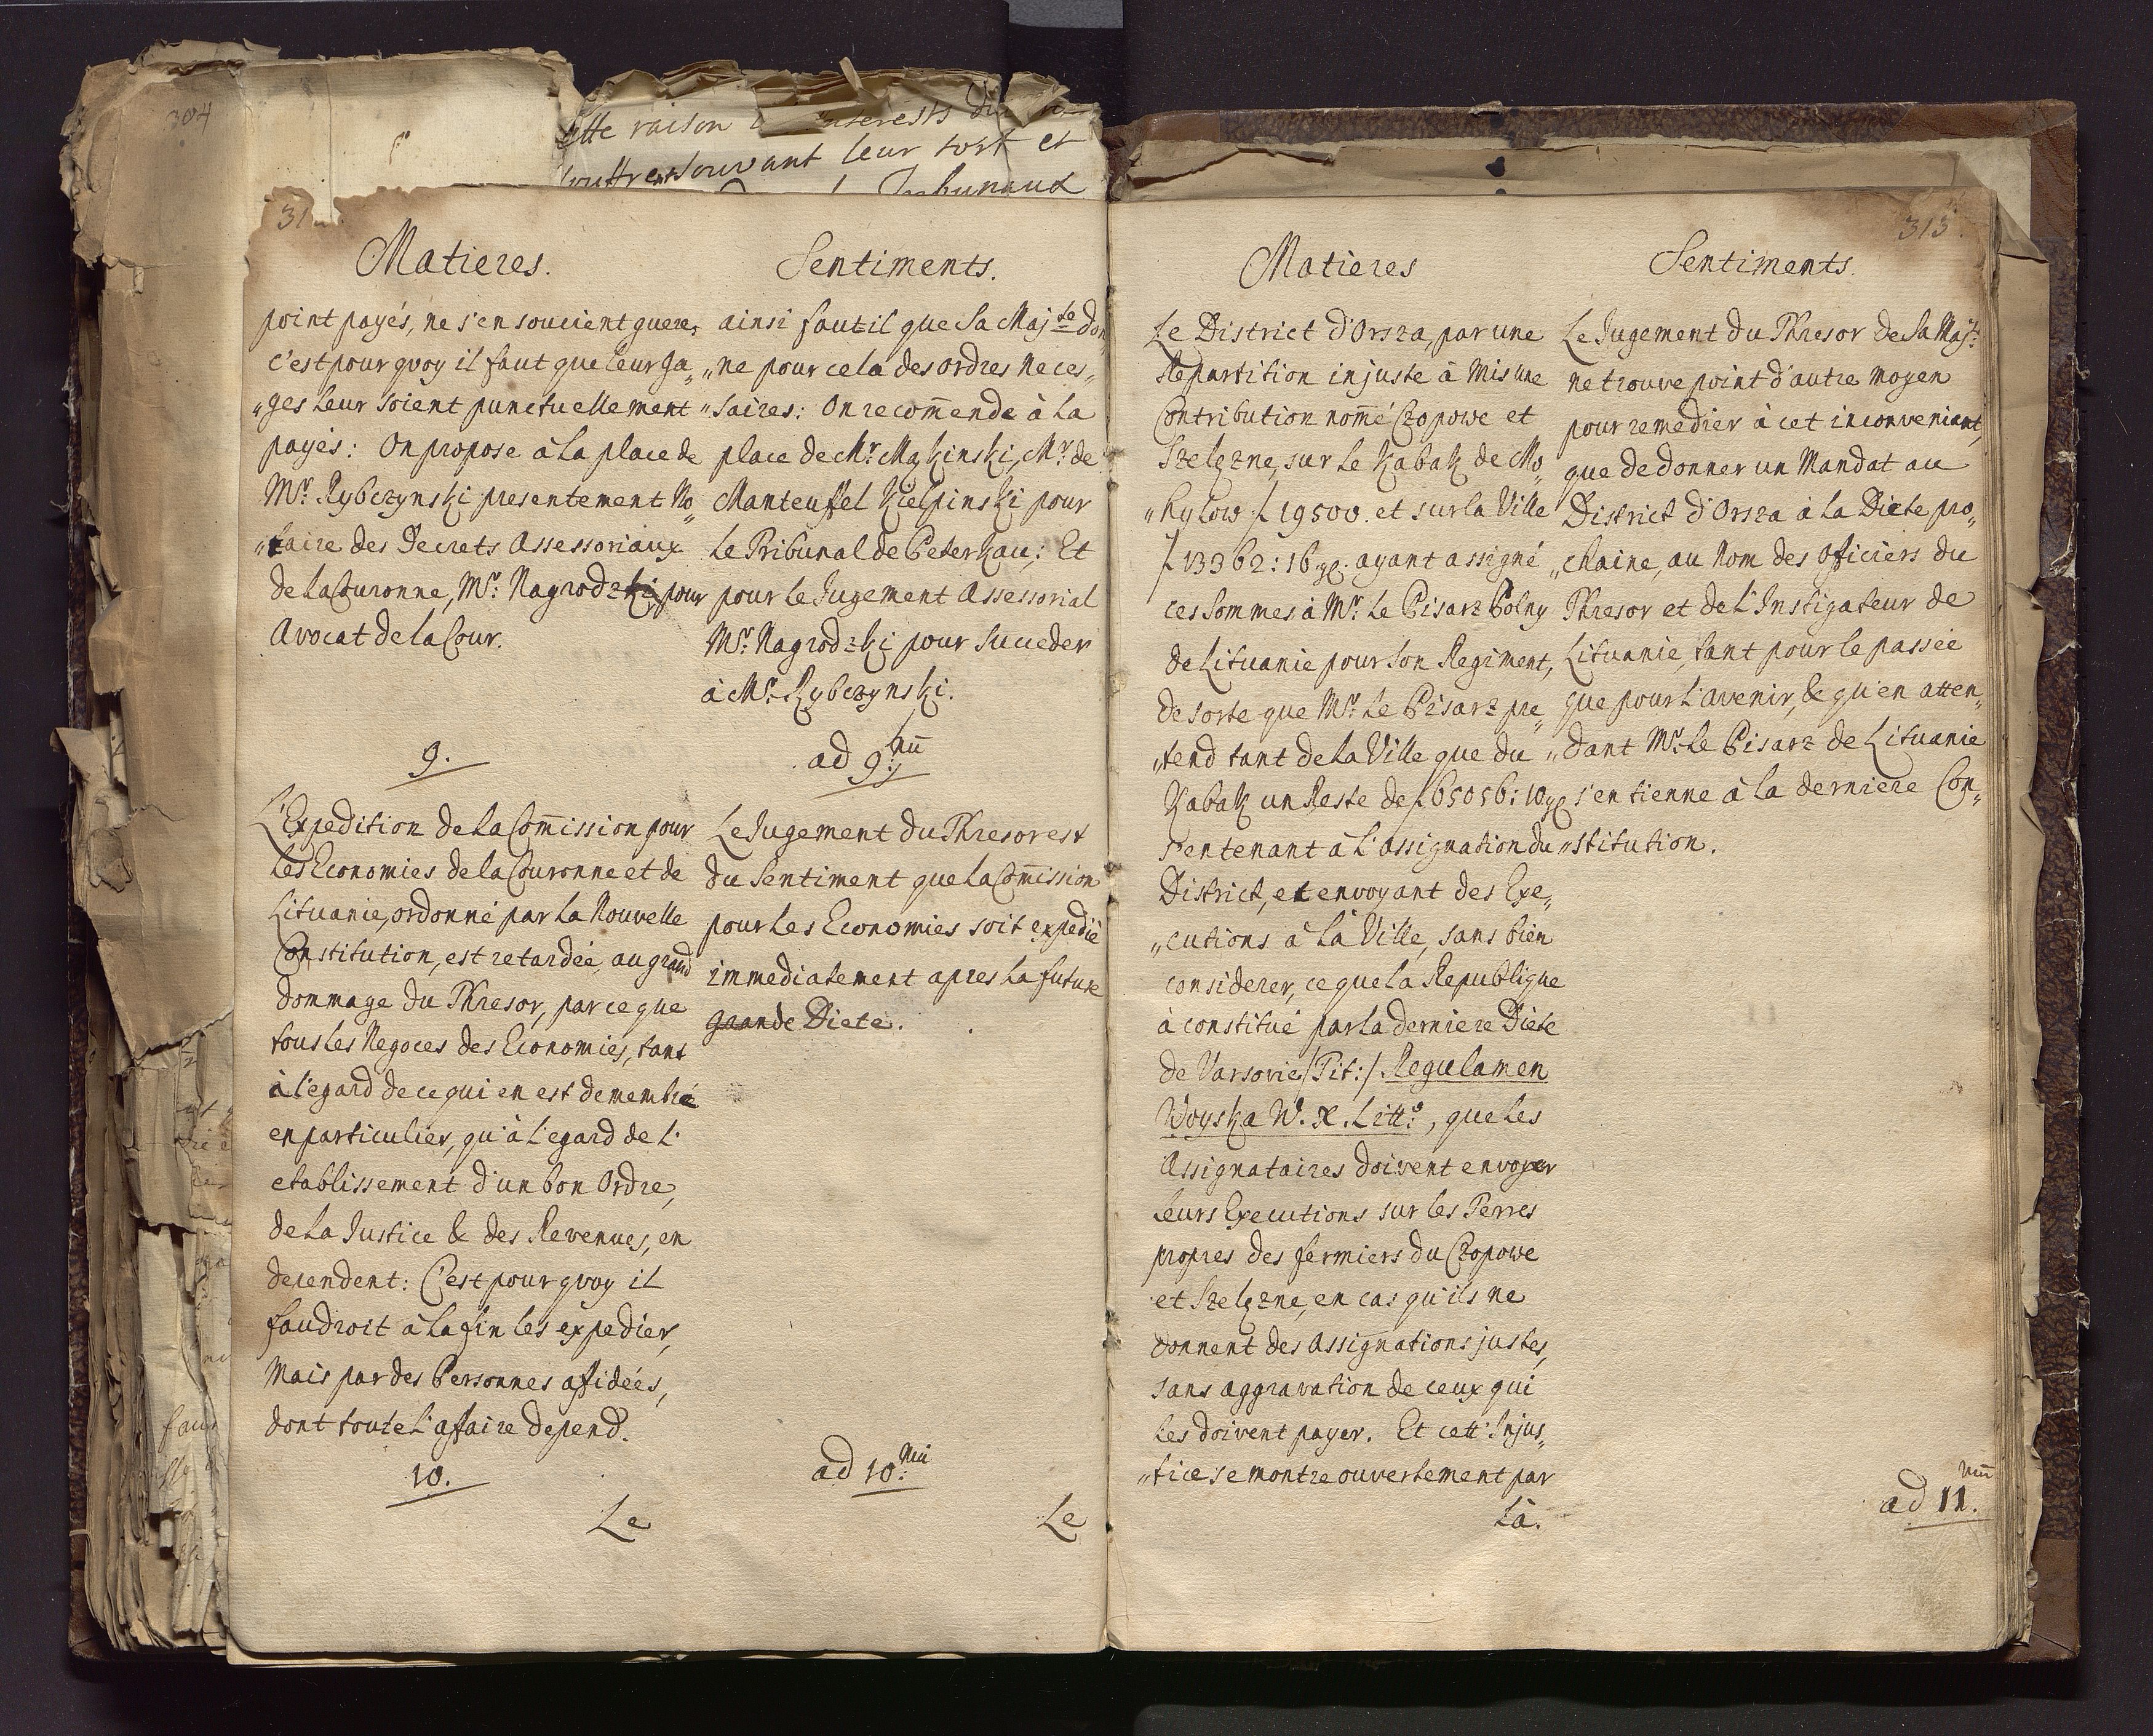 304
cette raison
interests
souffrent souvant leur tort et
Tribunaux
31
Matieres.
point payés, ne s'en soucient guere,
c'est pour quoy il faut que leur ga„
„ges leur soient punctuellement
payés: On propose à la place de
Mr. Rybczynski presentement No„
„taire des Decrets Assessoriaux
de la Couronne, Mr. Nagrodzki pour
Avocat de la Cour.
9.
L'Expedition de la Com̄ission pour
les Economies de la Couronne et de
Lituanie, ordonné par la Nouvelle
Constitution, est retardée, au grand
dommage du Thresor, parce que
tous les Negoces des Economies, tant
à l'egard de ce qui en est demembré
en particulier, qu'à l'egard de l'
etablissement d'un bon Ordre,
de la Justice & des Revenues, en
dependent: C'est pour quoy il
faudroit à la fin les expedier,
Mais par des Personnes affideés,
dont toute l'affaire depend.
10.
Le
Sentiments.
ainsi faut il que Sa Majté don„
„ne pour cela des ordres neces„
„saires: On recom̄ende à la
place de Mr. Mąkinski, Mr. de
Manteuffel Kielpinski pour
le Tribunal de Peterkau; Et
pour le Jugement Assessorial
Mr. Nagrodzki pour succeder
à Mr. Rybczynski.
ad 9.nū
Le Jugement du Thresor est
du Sentiment que la Com̄ission
pour les Economies soit expedié
immediatement apres la future
grande Diete.
ad 10.mū
Le
313.
Matieres
Le District d'Orsza, par une
Repartition injuste à mis une
Contribution nom̄é Czopowe et
Szelęzne, sur le Kabak de Mo„
„hylow f 19500. et sur la Ville
f 13362: 16 gl. ayant assigné
ces sommes à Mr. le Pisarz Polny
de Lituanie pour son Regiment,
de sorte que Mr. le Pisarz pre„
„tend tant de la Ville que du
Kabak un Reste de f 65056: 10 gl
s'entenant à l'assignation du
District, et envoyant des Exe„
„cutions à la Ville, sans bien
considerer, ce que la Republique
à constitué par la derniere Diete
de Varsovie /Tit:/ Regulamen
Woyska W. X. Litto:, que les
Assignataires doivent envoyer
leurs Executions sur les Terres
propres des fermiers du Czopowe
et Szelęzne, en cas qu'ils ne
donnent des Assignations justes,
sans aggravation de ceux qui
les doivent payer. Et cett' Injus„
„tice se montre ouvertement par
là.
Sentiments.
Le Jugement du Thresor de Sa Majt:
ne trouve point d'autre moyen
pour remedier à cet inconveniant,
que de donner un Mandat au
District d'Orsza à la Diete pro„
„chaine, au Nom des Officiers du
Thresor et de l'Instigateur de
Lituanie, tant pour le passée
que pour l'avenir, & qu'en atten„
„dant Mr. le Pisarz de Lituanie
s'en tienne à la derniere Con„
„stitution.
ad 11.mū